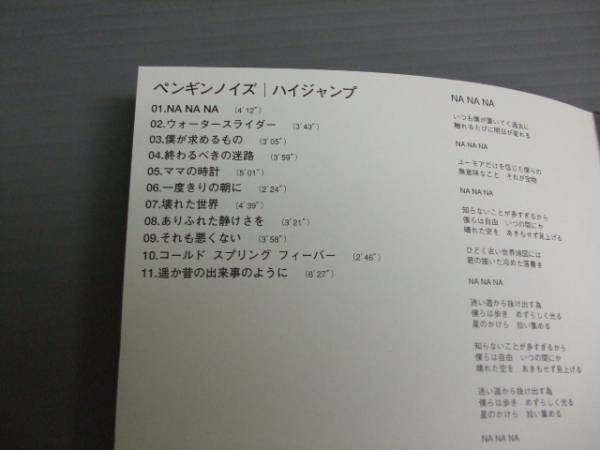 ペンギンノイズ｜ハイジャンプ
01.NA NA NA （4'12"）
02.ウォータースライダー （3'43"）
03.僕が求めるもの （3'05"）
04.終わるべきの迷路 （3'59"）
05.ママの時計 （5'01"）
06.一度きりの朝に （2'24"）
07.壊れた世界 （4'39"）
08.ありふれた静けさを （3'21"）
09.それも悪くない （3'58"）
10.コールド スプリング フィーバー （2'46"）
11.遥か昔の出来事のように （6'27"）
NA NA NA
いつも僕が置いてく過去に
触れるたびに明日が変わる
NA NA NA
ユーモアだけを信じた僕らの
無意味なこと それが宝物
NA NA NA
知らないことが多すぎるから
僕らは自由 いつの間にか
晴れた空を あきもせず見上げる
ひどく古い世界地図には
君の描いた冷めた落書き
NA NA NA
迷い道から抜け出す為
僕らは歩き めずらしく光る
星のかけら 拾い集める
知らないことが多すぎるから
僕らは自由 いつの間にか
晴れた空を あきもせず見上げる
迷い道から抜け出す為
僕らは歩き めずらしく光る
星のかけら 拾い集める
NA NA NA